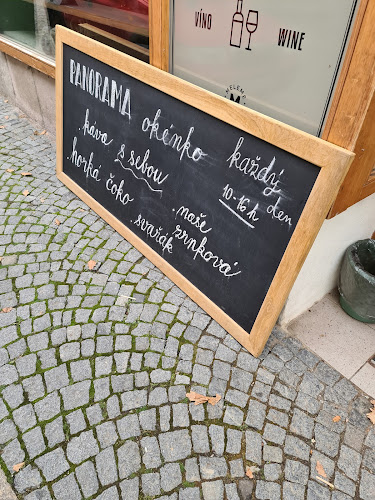 VÍNO
WINE
MELENO
M
PANORAMA okénko každý den
10-16h
.káva s sebou
.horká čoko
.naše
zrnková
.svařák